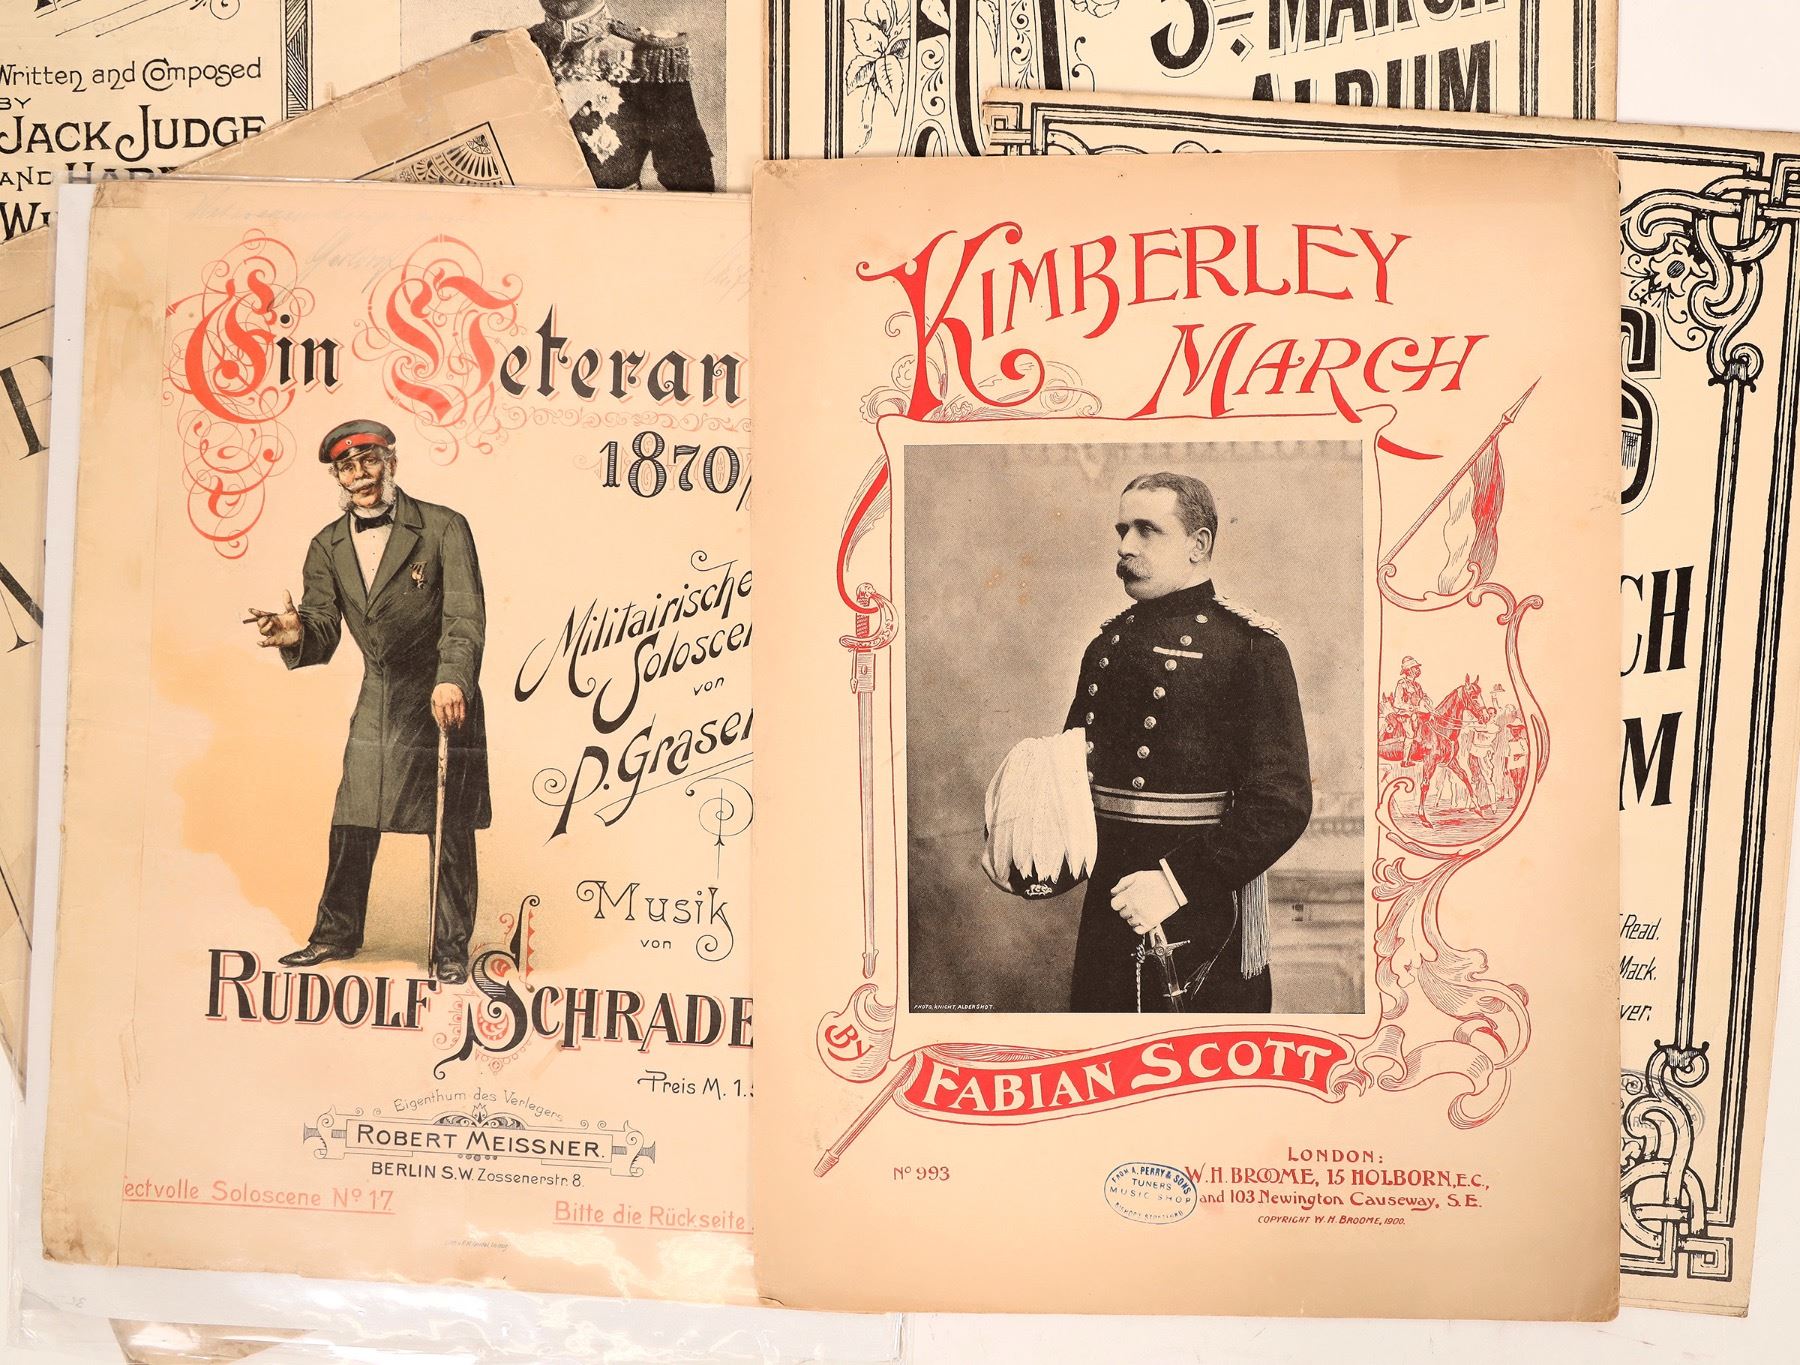 Written and Composed
BY
JACK JUDGE
AND
5TH MARCH
ALBUM
Ein Veteran
1870/
Militairische
von
P. Graser
Musik
von
RUDOLF SCHRADE
Preis M. 1.
Eigenthum des Verlegers
ROBERT MEISSNER.
BERLIN S.W. Zossenerstr. 8.
ectvolle Soloscene No 17.
Bitte die Rückseite
KIMBERLEY
MARCH
PHOTO, KNIGHT, ALDERSHOT.
BY
FABIAN SCOTT
No 993
LONDON:
W. H. BROOME, 15 HOLBORN, E.C.,
and 103 Newington Causeway, S.E.
COPYRIGHT W. H. BROOME, 1900.
FROM A. PERRY & SONS
TUNERS
MUSIC SHOP
S
CH
M
Read.
Mack.
ver.